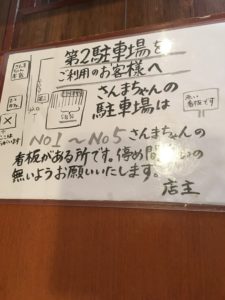 第2駐車場を
ご利用のお客様へ
さんまちゃんの
駐車場は
No1～No5 さんまちゃんの
看板がある所です。停め間違いの
無いようお願いいたします。
店主